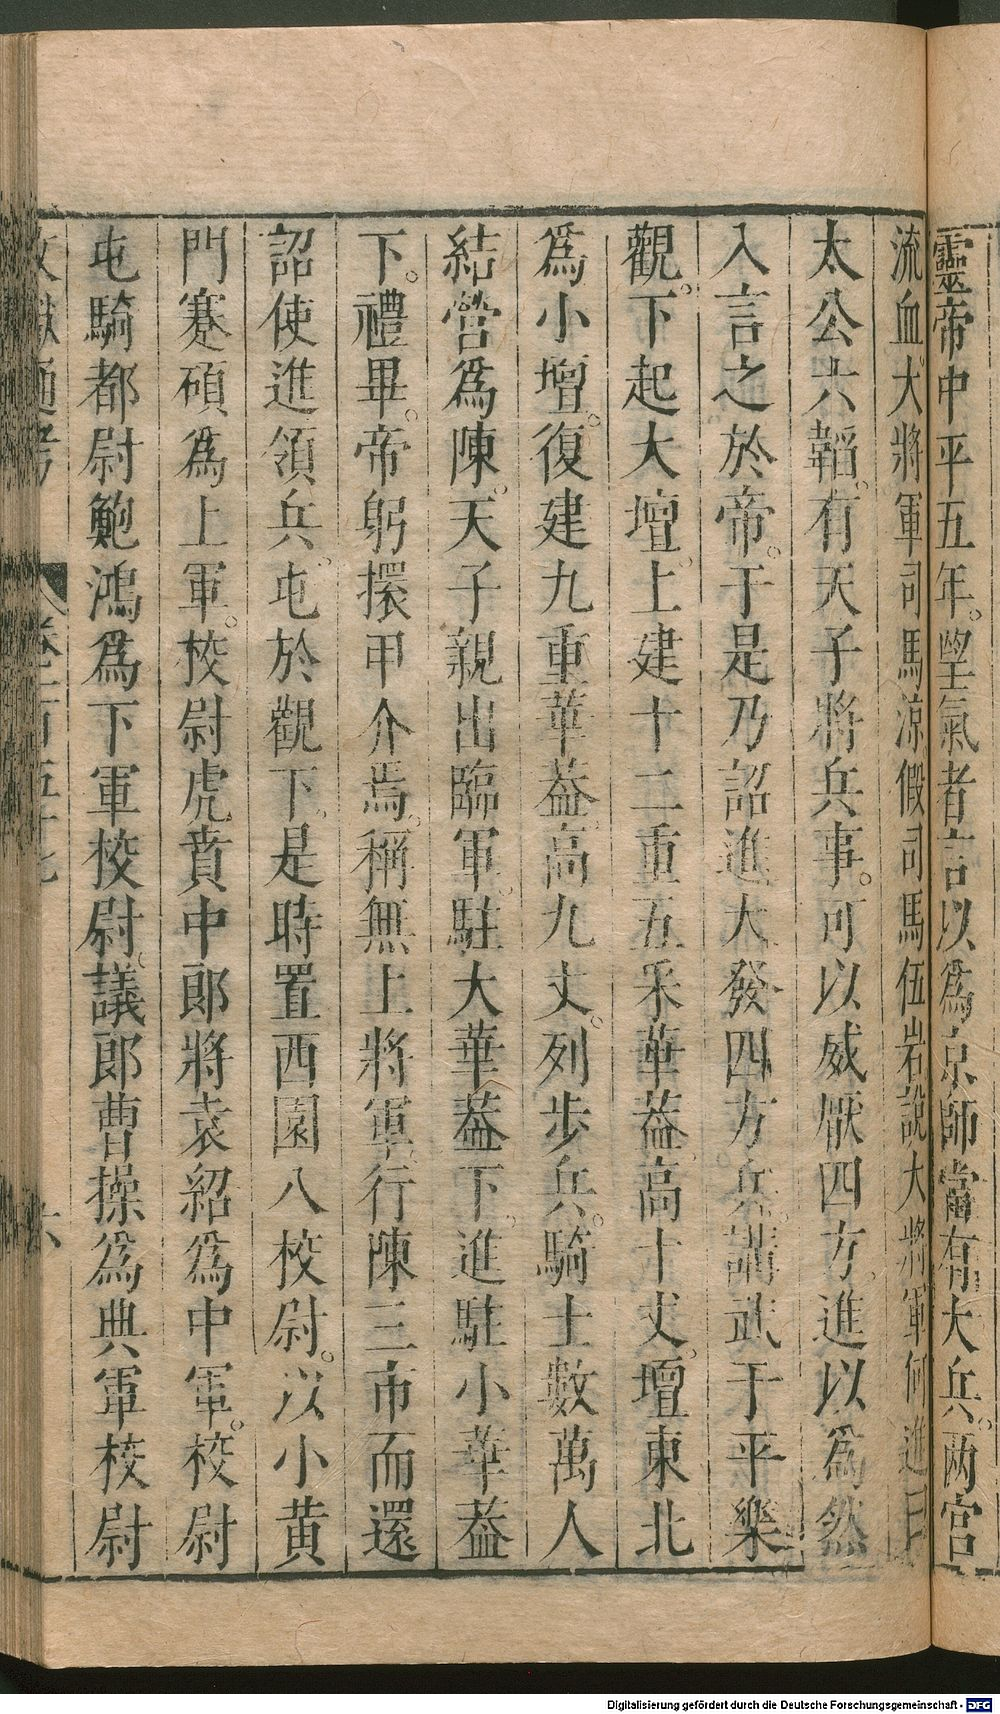 靈帝中平五年。望氣者言以爲京師當有大兵。兩宮
流血。大將軍司馬涼。假司馬伍宕說大將軍何進曰
太公六韜。有天子將兵事。可以威厭四方。進以爲然
入言之於帝。于是乃詔進大發四方兵。講武于平樂
觀。下起大壇。上建十二重五采華葢。高十丈。壇東北
爲小壇。復建九重華葢。高九丈。列步兵。騎士數萬人
結營爲陳。天子親出臨軍。駐大華葢下。進駐小華葢
下。禮畢。帝躬擐甲介焉。稱無上將軍。行陳三市而還
詔使進領兵。屯於觀下。是時置西園八校尉。以小黄
門蹇碩爲上軍。校尉虎賁中郎將袁紹爲中軍。校尉
屯騎都尉鮑鴻爲下軍校尉。議郎曹操爲典軍校尉
文獻通考 卷一百五十七 六
Digitalisierung gefördert durch die Deutsche Forschungsgemeinschaft - DFG